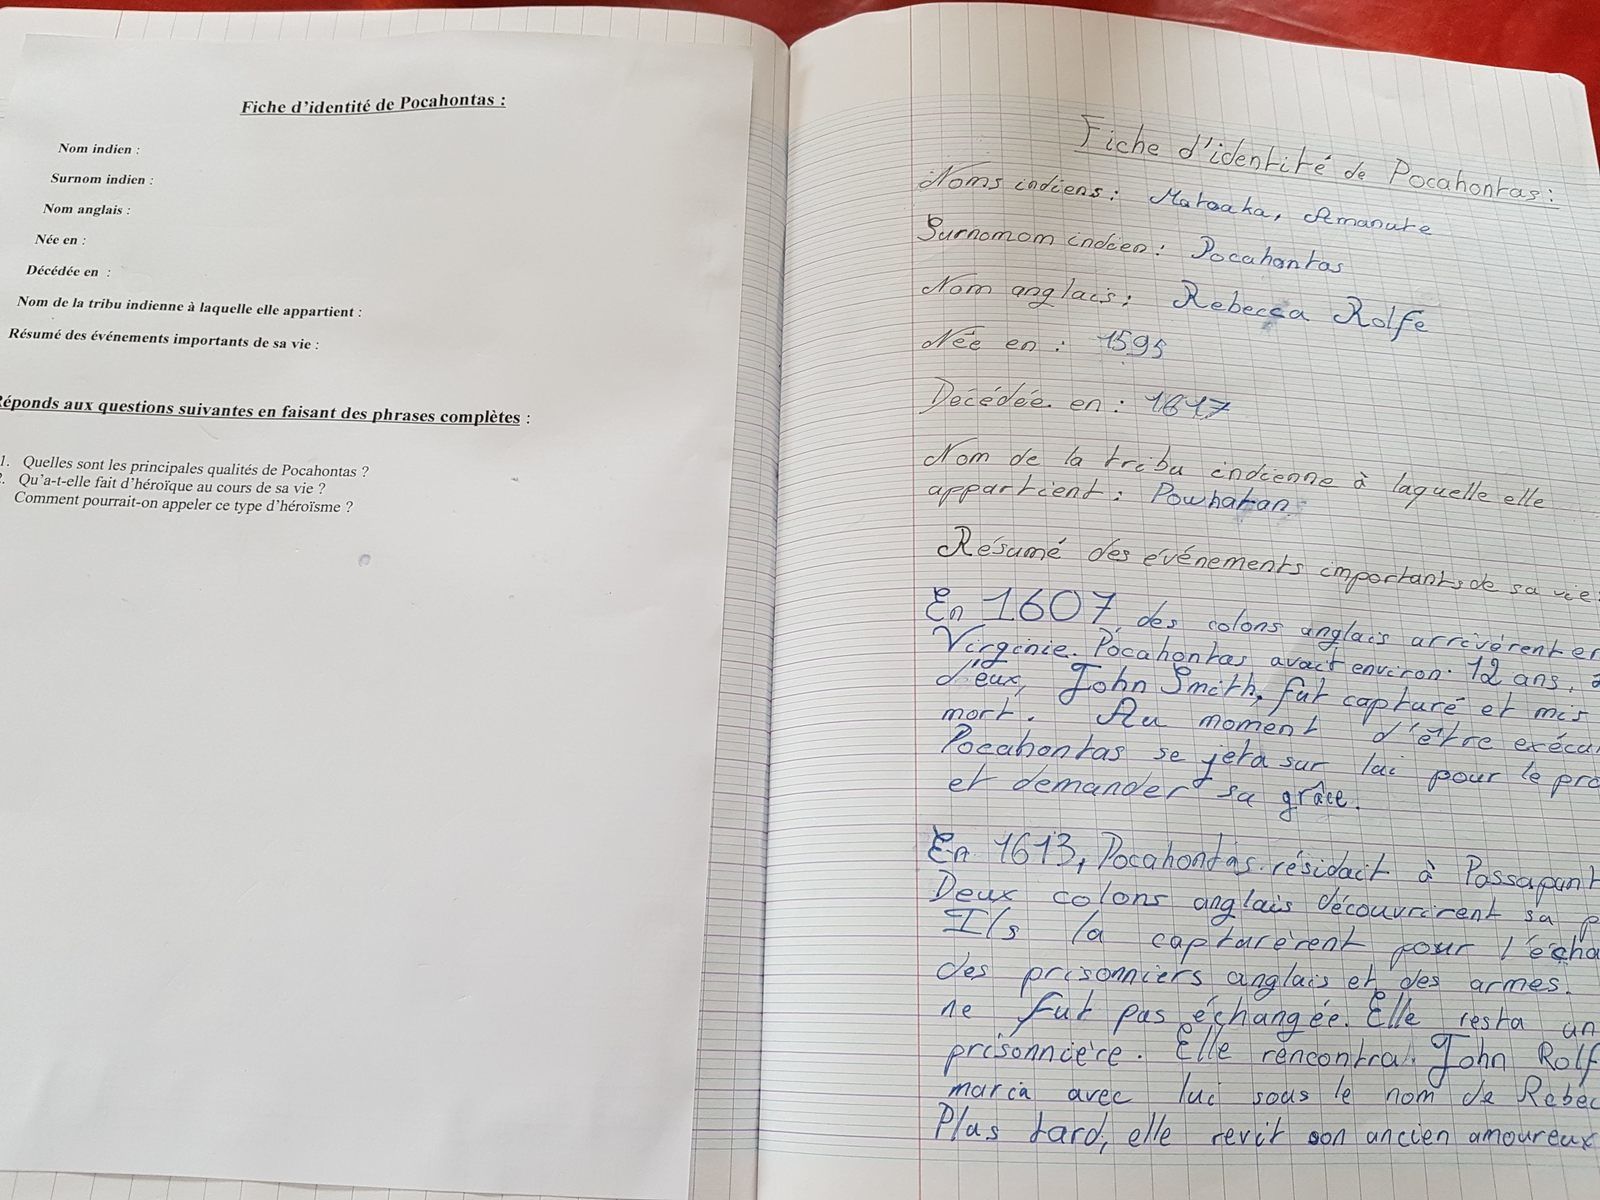 Fiche d'identité de Pocahontas :
Nom indien :
Surnom indien :
Nom anglais :
Née en :
Décédée en :
Nom de la tribu indienne à laquelle elle appartient :
Résumé des événements importants de sa vie :
Réponds aux questions suivantes en faisant des phrases complètes :
1. Quelles sont les principales qualités de Pocahontas ?
2. Qu'a-t-elle fait d'héroïque au cours de sa vie ?
Comment pourrait-on appeler ce type d'héroïsme ?
Fiche d'identité de Pocahontas :
Noms indiens : Mataoka, Amanute
Surnomom indien : Pocahontas
Nom anglais : Rebecca Rolfe
Née en : 1595
Décédée en : 1617
Nom de la tribu indienne à laquelle elle
appartient : Powhatan
Résumé des événements importants de sa vie :
En 1607, des colons anglais arrivèrent en
Virginie. Pocahontas avait environ 12 ans.
d'eux, John Smith, fut capturé et mis
mort. Au moment d'être exécu
Pocahontas se jeta sur lui pour le pro
et demander sa grâce.
En 1613, Pocahontas résidait à Passapant
Deux colons anglais découvrirent sa p
Ils la capturèrent pour l'écha
des prisonniers anglais et des armes.
ne fut pas échangée. Elle resta un
prisonnière. Elle rencontra John Rolf
maria avec lui sous le nom de Rebec
Plus tard, elle revit son ancien amoureux